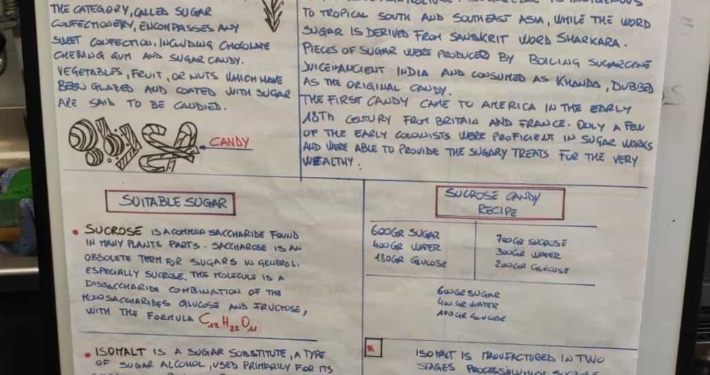 THE CATEGORY, CALLED SUGAR
CONFECTIONERY, ENCOMPASSES ANY
SWEET CONFECTION, INCLUDING CHOCOLATE
CHEWING GUM AND SUGAR CANDY.
VEGETABLES, FRUIT, OR NUTS WHICH HAVE
BEEN GLAZED AND COATED WITH SUGAR
ARE SAID TO BE CANDIED.
CANDY
TO TROPICAL SOUTH AND SOUTHEAST ASIA, WHILE THE WORD
SUGAR IS DERIVED FROM SANSKRIT WORD SHARKARA.
PIECES OF SUGAR WERE PRODUCED BY BOILING SUGARCANE
JUICE IN ANCIENT INDIA AND CONSUMED AS KHANDA, DUBBED
AS THE ORIGINAL CANDY.
THE FIRST CANDY CAME TO AMERICA IN THE EARLY
18TH CENTURY FROM BRITAIN AND FRANCE. ONLY A FEW
OF THE EARLY COLONISTS WERE PROFICIENT IN SUGAR WORKS
AND WERE ABLE TO PROVIDE THE SUGARY TREATS FOR THE VERY
WEALTHY.
SUITABLE SUGAR
• SUCROSE IS A COMMON SACCHARIDE FOUND
IN MANY PLANTS PARTS. SACCHAROSE IS AN
OBSOLETE TERM FOR SUGARS IN GENERAL.
ESPECIALLY SUCROSE, THE MOLECULE IS A
DISSACCHARIDE COMBINATION OF THE
MONOSACCHARIDES GLUCOSE AND FRUCTOSE,
WITH THE FORMULA C12H22O11
• ISOMALT IS A SUGAR SUBSTITUTE, A TYPE
OF SUGAR ALCOHOL, USED PRIMARILY FOR ITS
SUCROSE CANDY
RECIPE
600GR SUGAR
400GR WATER
180GR GLUCOSE
700GR SUCROSE
300GR WATER
200GR GLUCOSE
600GR SUGAR
400GR WATER
100GR GLUCOSE
ISOMALT IS MANUFACTURED IN TWO
STAGES